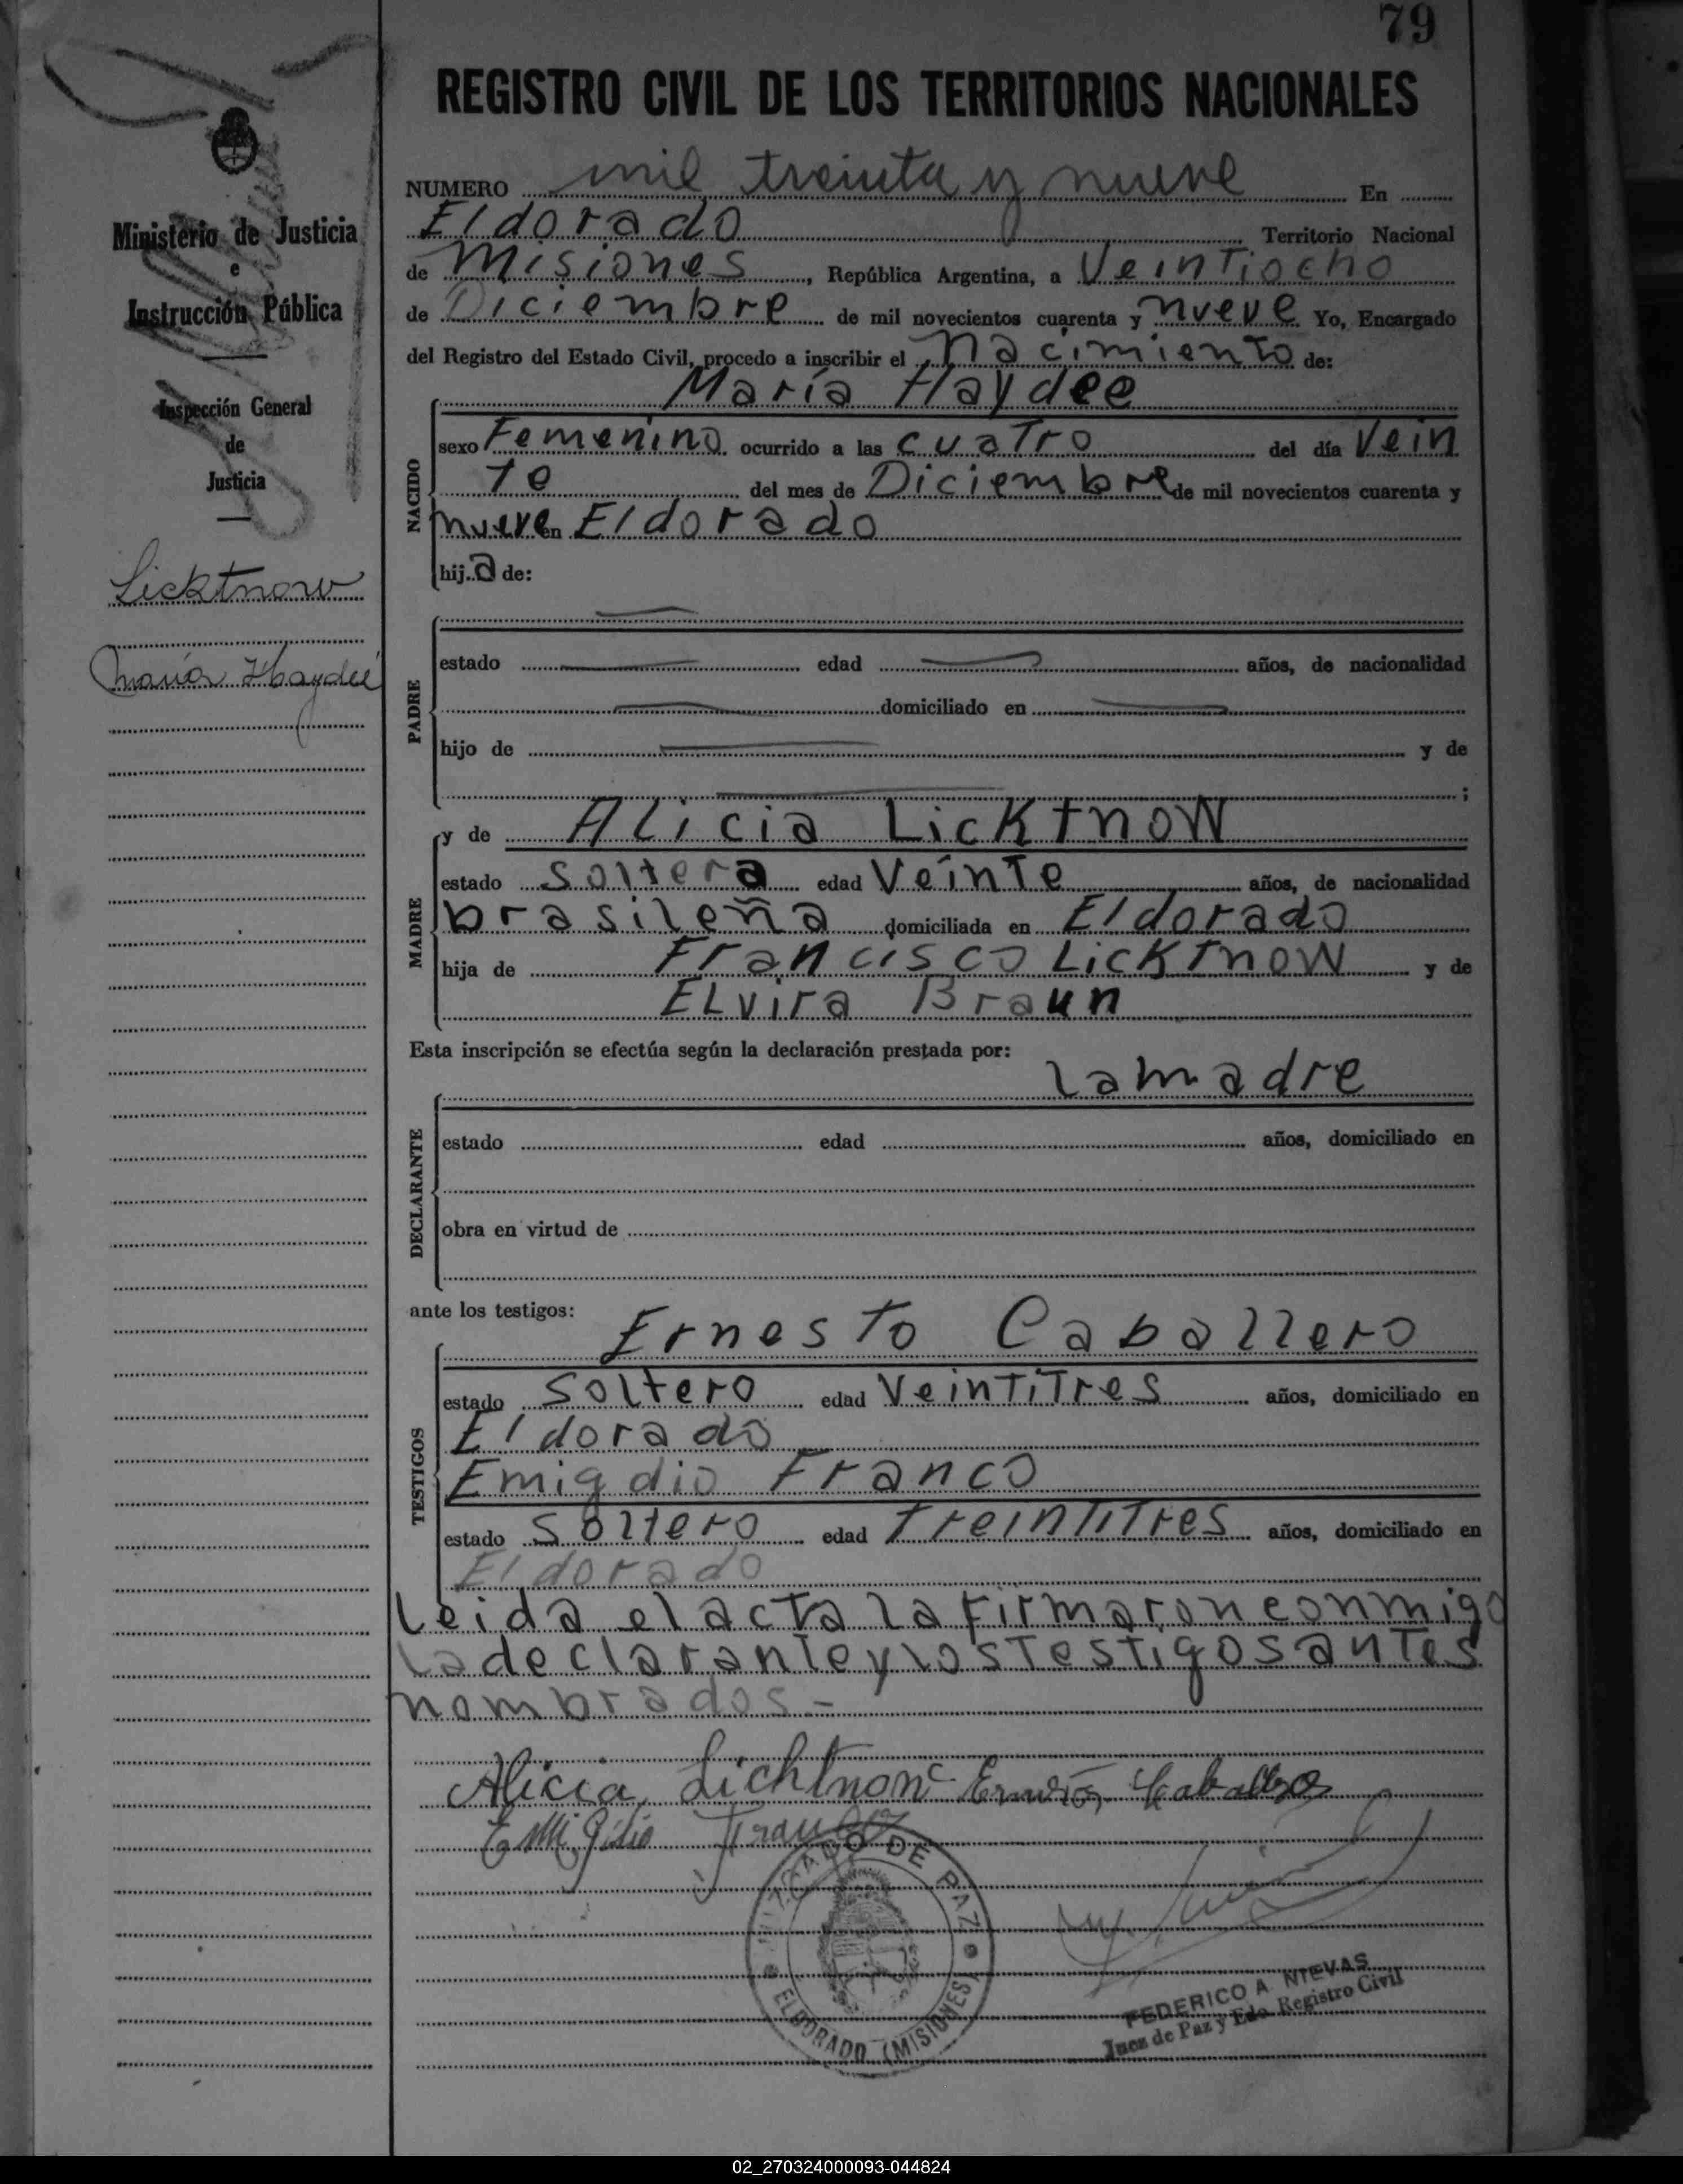 79
REGISTRO CIVIL DE LOS TERRITORIOS NACIONALES
Ministerio de Justicia
e
Instrucción Pública
Inspección General
de
Justicia
Licktnow
María Haydeé
NUMERO mil treinta y nueve En
Eldorado Territorio Nacional
de Misiones, República Argentina, a Veintiocho
de Diciembre de mil novecientos cuarenta y nueve Yo, Encargado
del Registro del Estado Civil, procedo a inscribir el Nacimiento de:
María Haydee
NACIDO
sexo Femenino ocurrido a las cuatro del día Vein
te del mes de Diciembre de mil novecientos cuarenta y
nueve en Eldorado
hija de:
PADRE
estado edad años, de nacionalidad
domiciliado en
hijo de y de
;
MADRE
y de Alicia Licktnow
estado soltera edad Veinte años, de nacionalidad
brasileña domiciliada en Eldorado
hija de Francisco Licktnow y de
Elvira Braun
Esta inscripción se efectúa según la declaración prestada por:
la madre
DECLARANTE
estado edad años, domiciliado en
obra en virtud de
ante los testigos:
Ernesto Caballero
TESTIGOS
estado soltero edad Veintitres años, domiciliado en
Eldorado
Emigdio Franco
estado soltero edad treintitres años, domiciliado en
Eldorado
Leida el acta la firmaron conmigo
la declarante y los testigos antes
nombrados.-
Alicia Lichtnon Ernesto Caballero
Emigdio Franco
JUZGADO DE PAZ
ELDORADO (MISIONES)
FEDERICO A. NIEVAS
Juez de Paz y Edo. Registro Civil
02_270324000093-044824